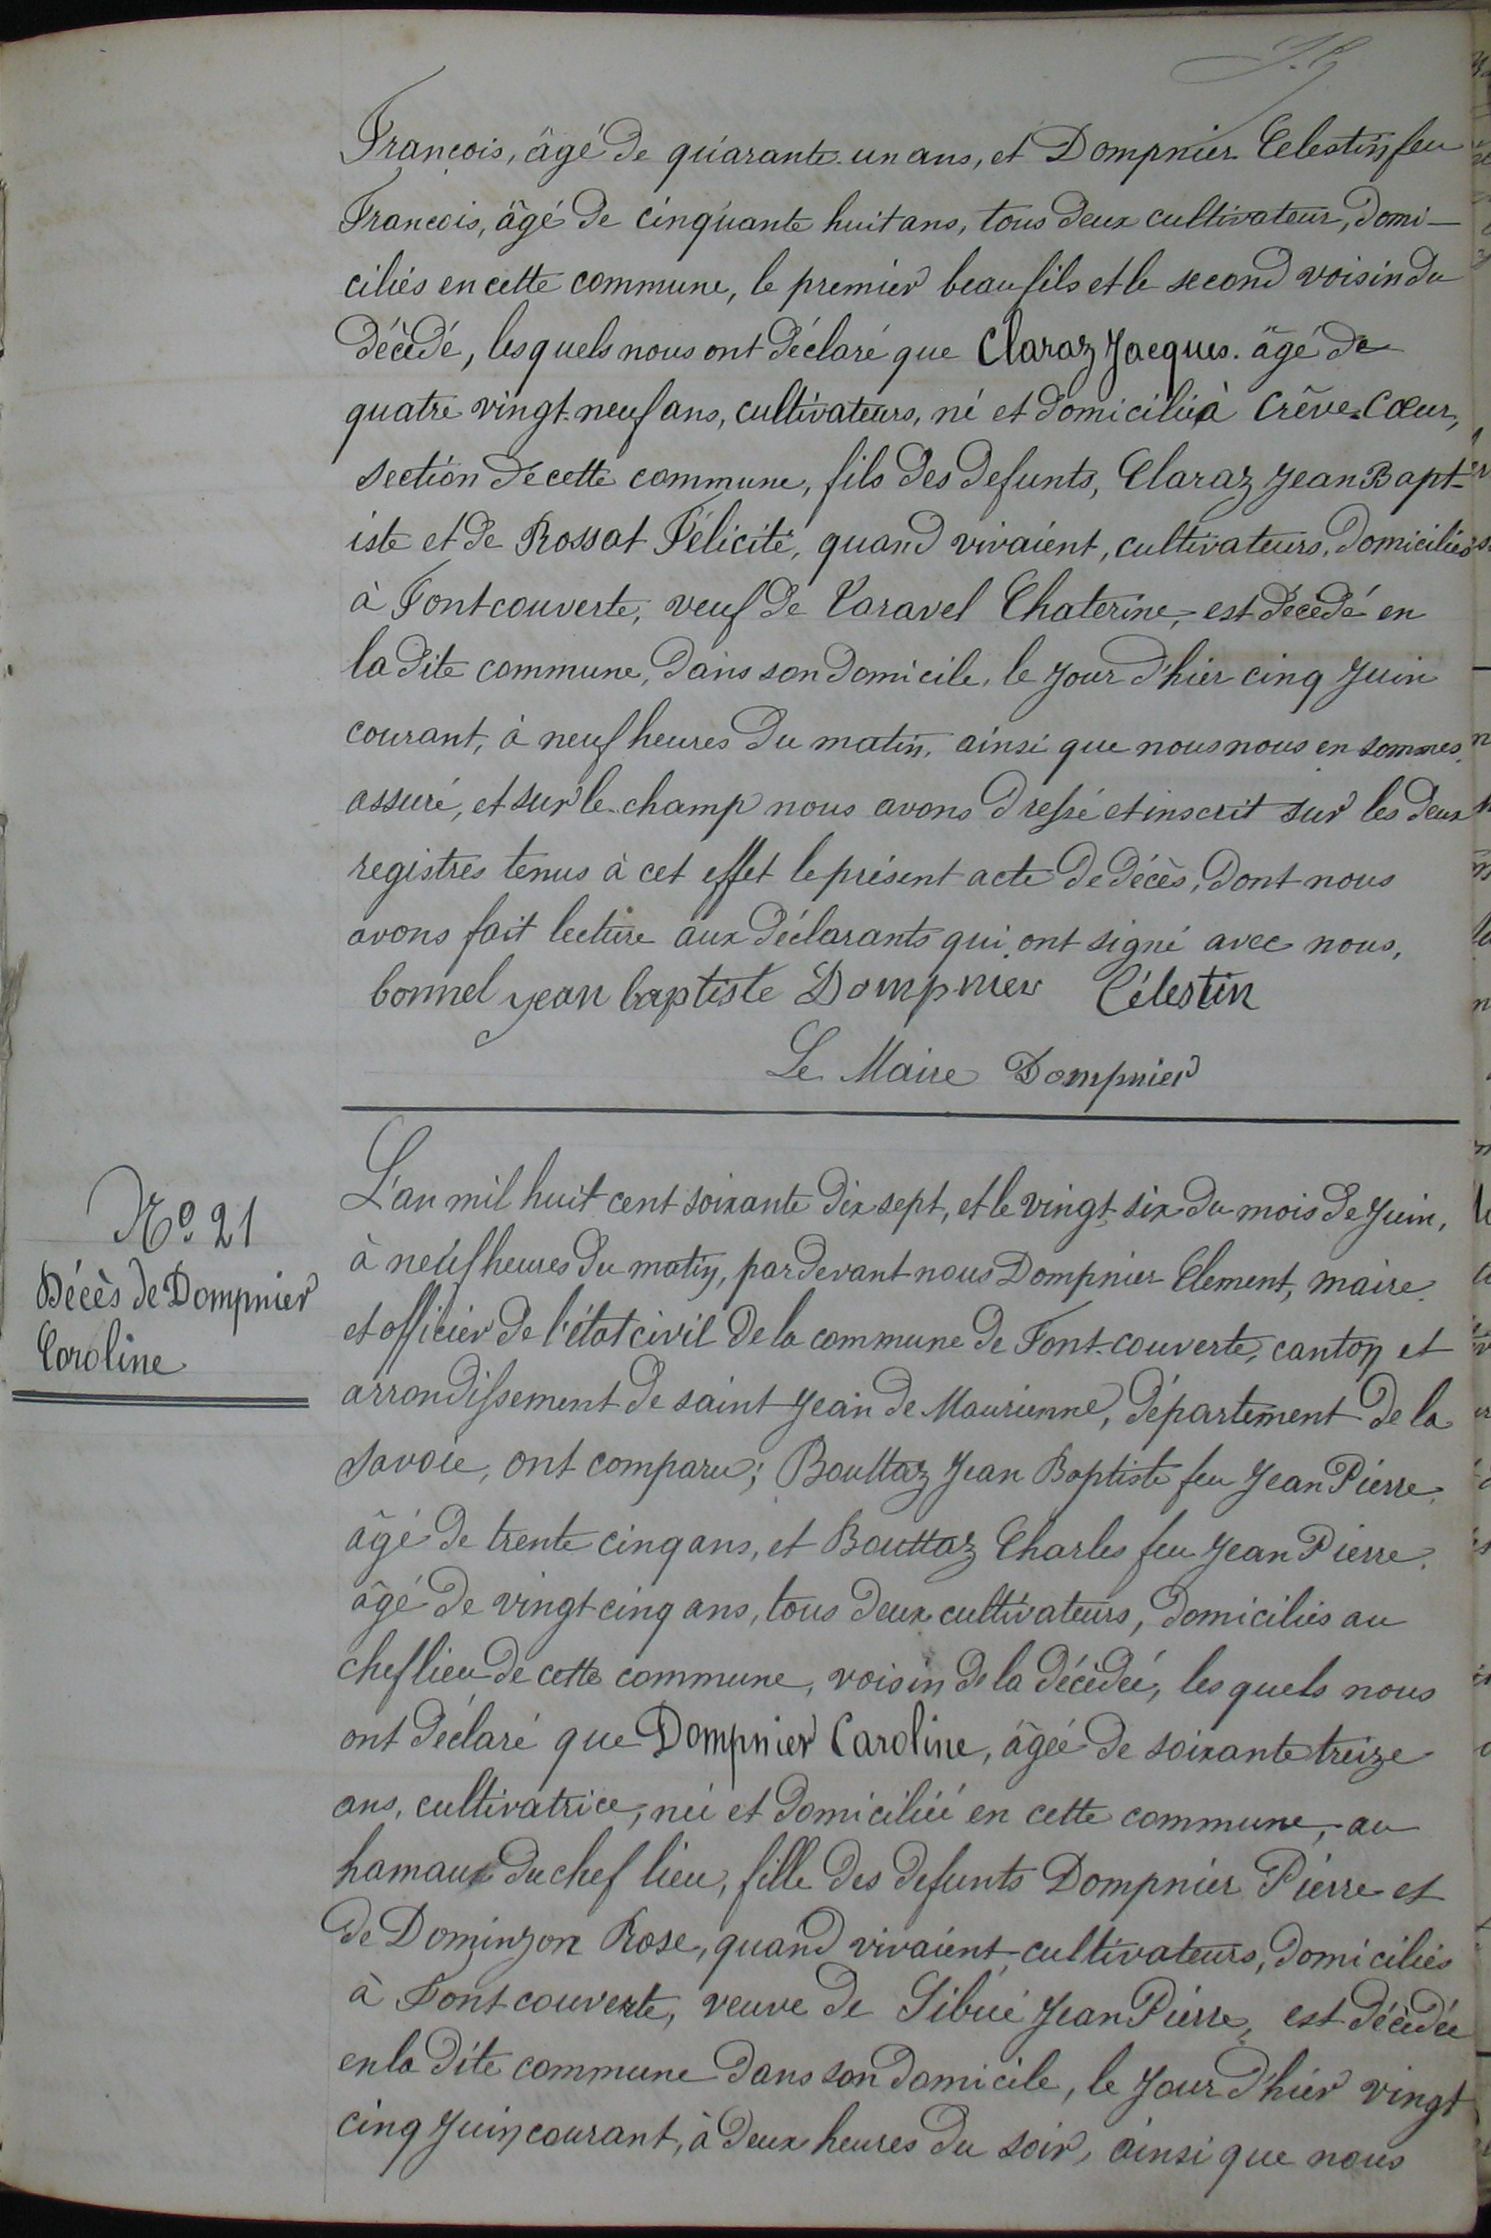 François, âgé de quarante-un ans, et Dompnier Celestin feu
François, âgé de cinquante huit ans, tous deux cultivateur, domi-
ciliés en cette commune, le premier beau fils et le second voisin du
décédé, les quels nous ont déclaré que Claraz Jacques. âgé de
quatre vingt-neuf ans, cultivateurs, né et domicilié à Crêve-Cœur,
section de cette commune, fils des defunts, Claraz Jean Bapt-
iste et de Rossat Félicité, quand vivaient, cultivateurs, domiciliés
à Fontcouverte, veuf de Varavel Chaterine, est décédé en
la dite commune, dans son domicile, le jour d'hier cinq Juin
courant, à neuf heures du matin, ainsi que nous nous en sommes
assuré, et sur le-champ nous avons dressé et inscrit sur les deux
registres tenus à cet effet le présent acte de décès, dont nous
avons fait lecture aux déclarants qui ont signé avec nous,
bonnel jean baptiste Dompnier Célestin
Le Maire Dompnier
Nº 21
Décès de Dompnier
Caroline
L'an mil huit cent soixante dix sept, et le vingt six du mois de Juin,
à neuf heures du matin, par devant nous Dompnier Clement, maire
et officier de l'état civil de la commune de Font-couverte, canton et
arrondissement de saint Jean de Maurienne, département de la
Savoie, ont comparu; Bouttaz Jean Baptiste feu Jean Pierre,
âgé de trente cinq ans, et Bouttaz Charles feu Jean Pierre,
âgé de vingt cinq ans, tous deux cultivateurs, domiciliés au
chef lieu de cette commune, voisin de la décédée, les quels nous
ont déclaré que Dompnier Caroline, âgée de soixante treize
ans, cultivatrice, née et domiciliée en cette commune, au
hamaux du chef lieu, fille des defunts Dompnier Pierre et
de Dominjon Rose, quand vivaient cultivateurs, domiciliés
à Fontcouverte, veuve de Sibué Jean Pierre, est décédée
en la dite commune dans son domicile, le jour d'hier vingt
cinq Juin courant, à deux heures du soir, ainsi que nous